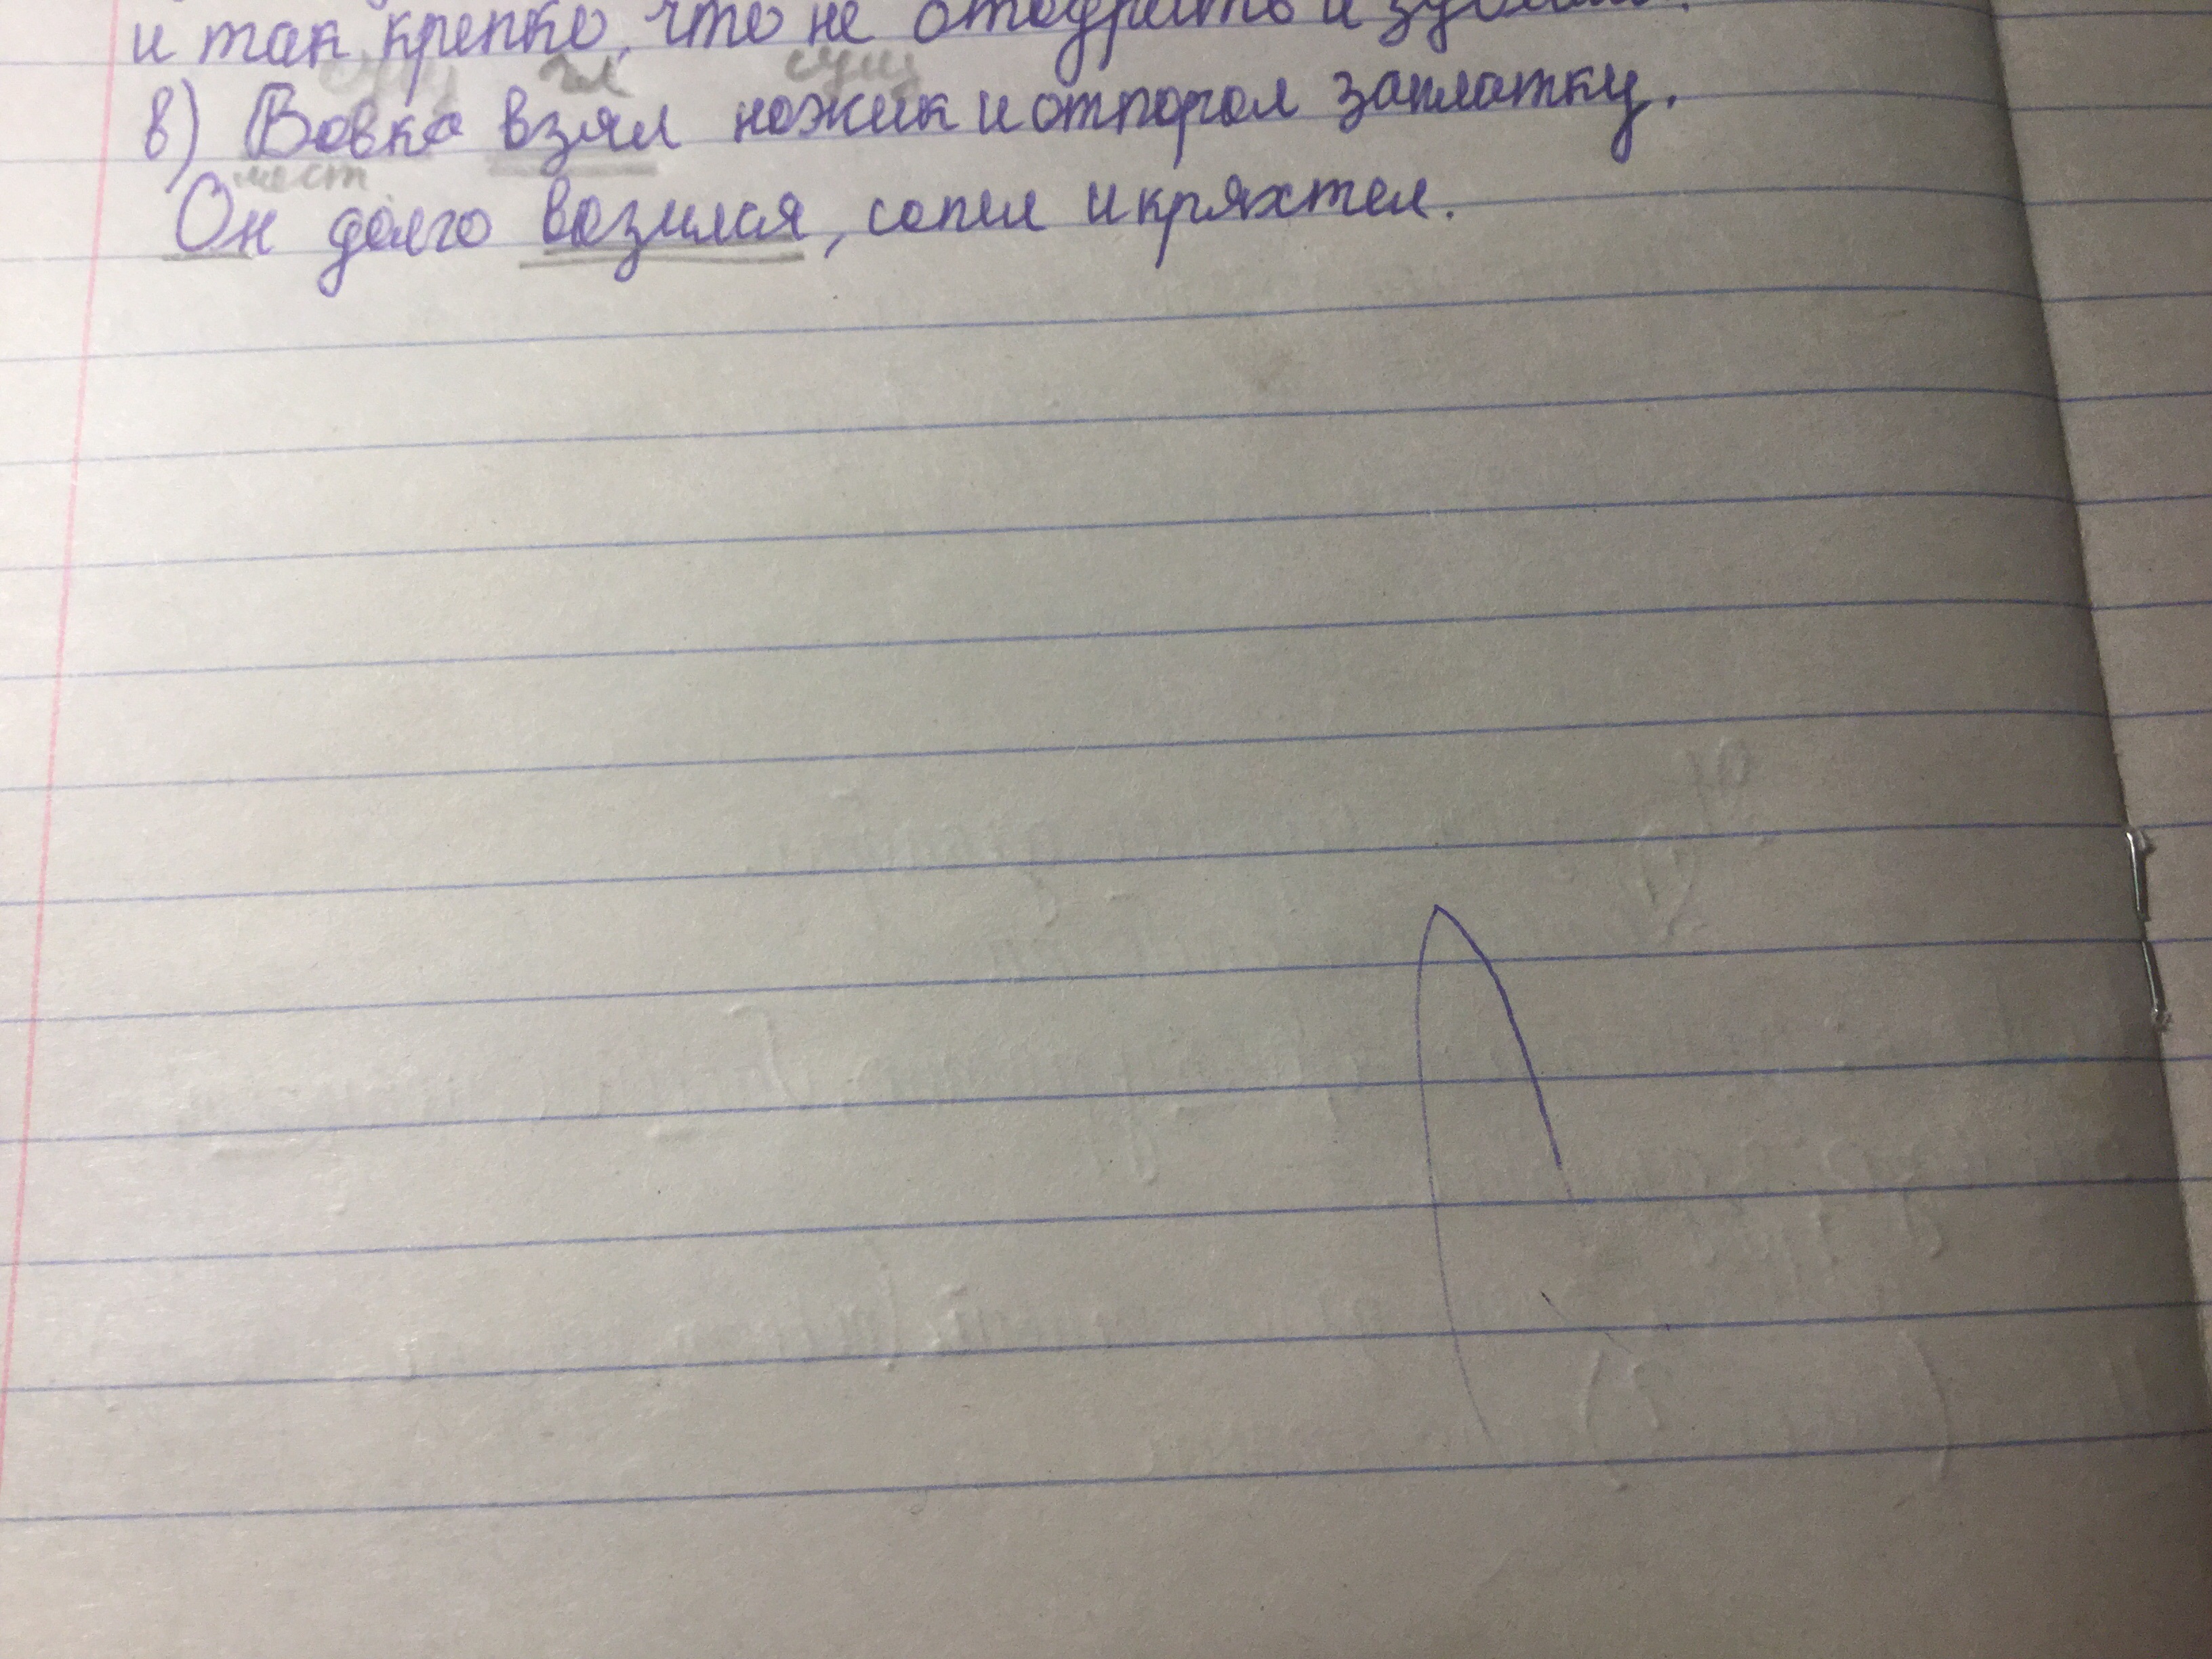 и так крепко, что не отодрать и зубами.
сущ гл сущ
в) Вовка взял ножик и отпорол заплатку.
мест
Он долго возился, сопел и кряхтел.